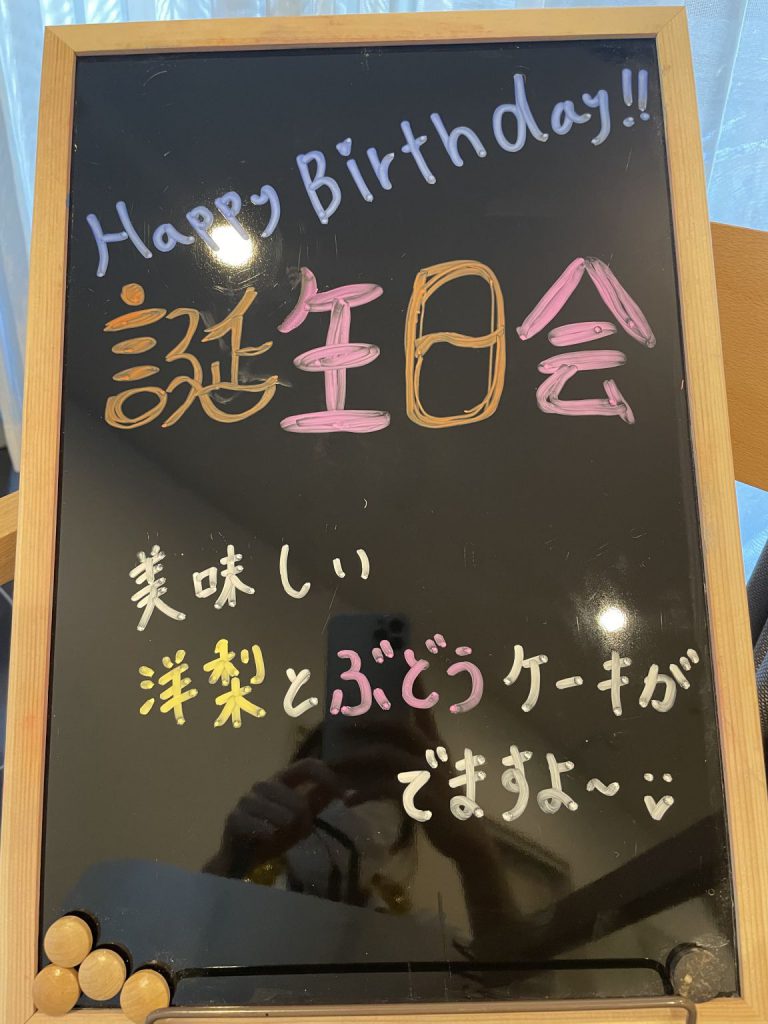 Happy Birthday!!
誕生日会
美味しい
洋梨とぶどうケーキが
でますよ〜